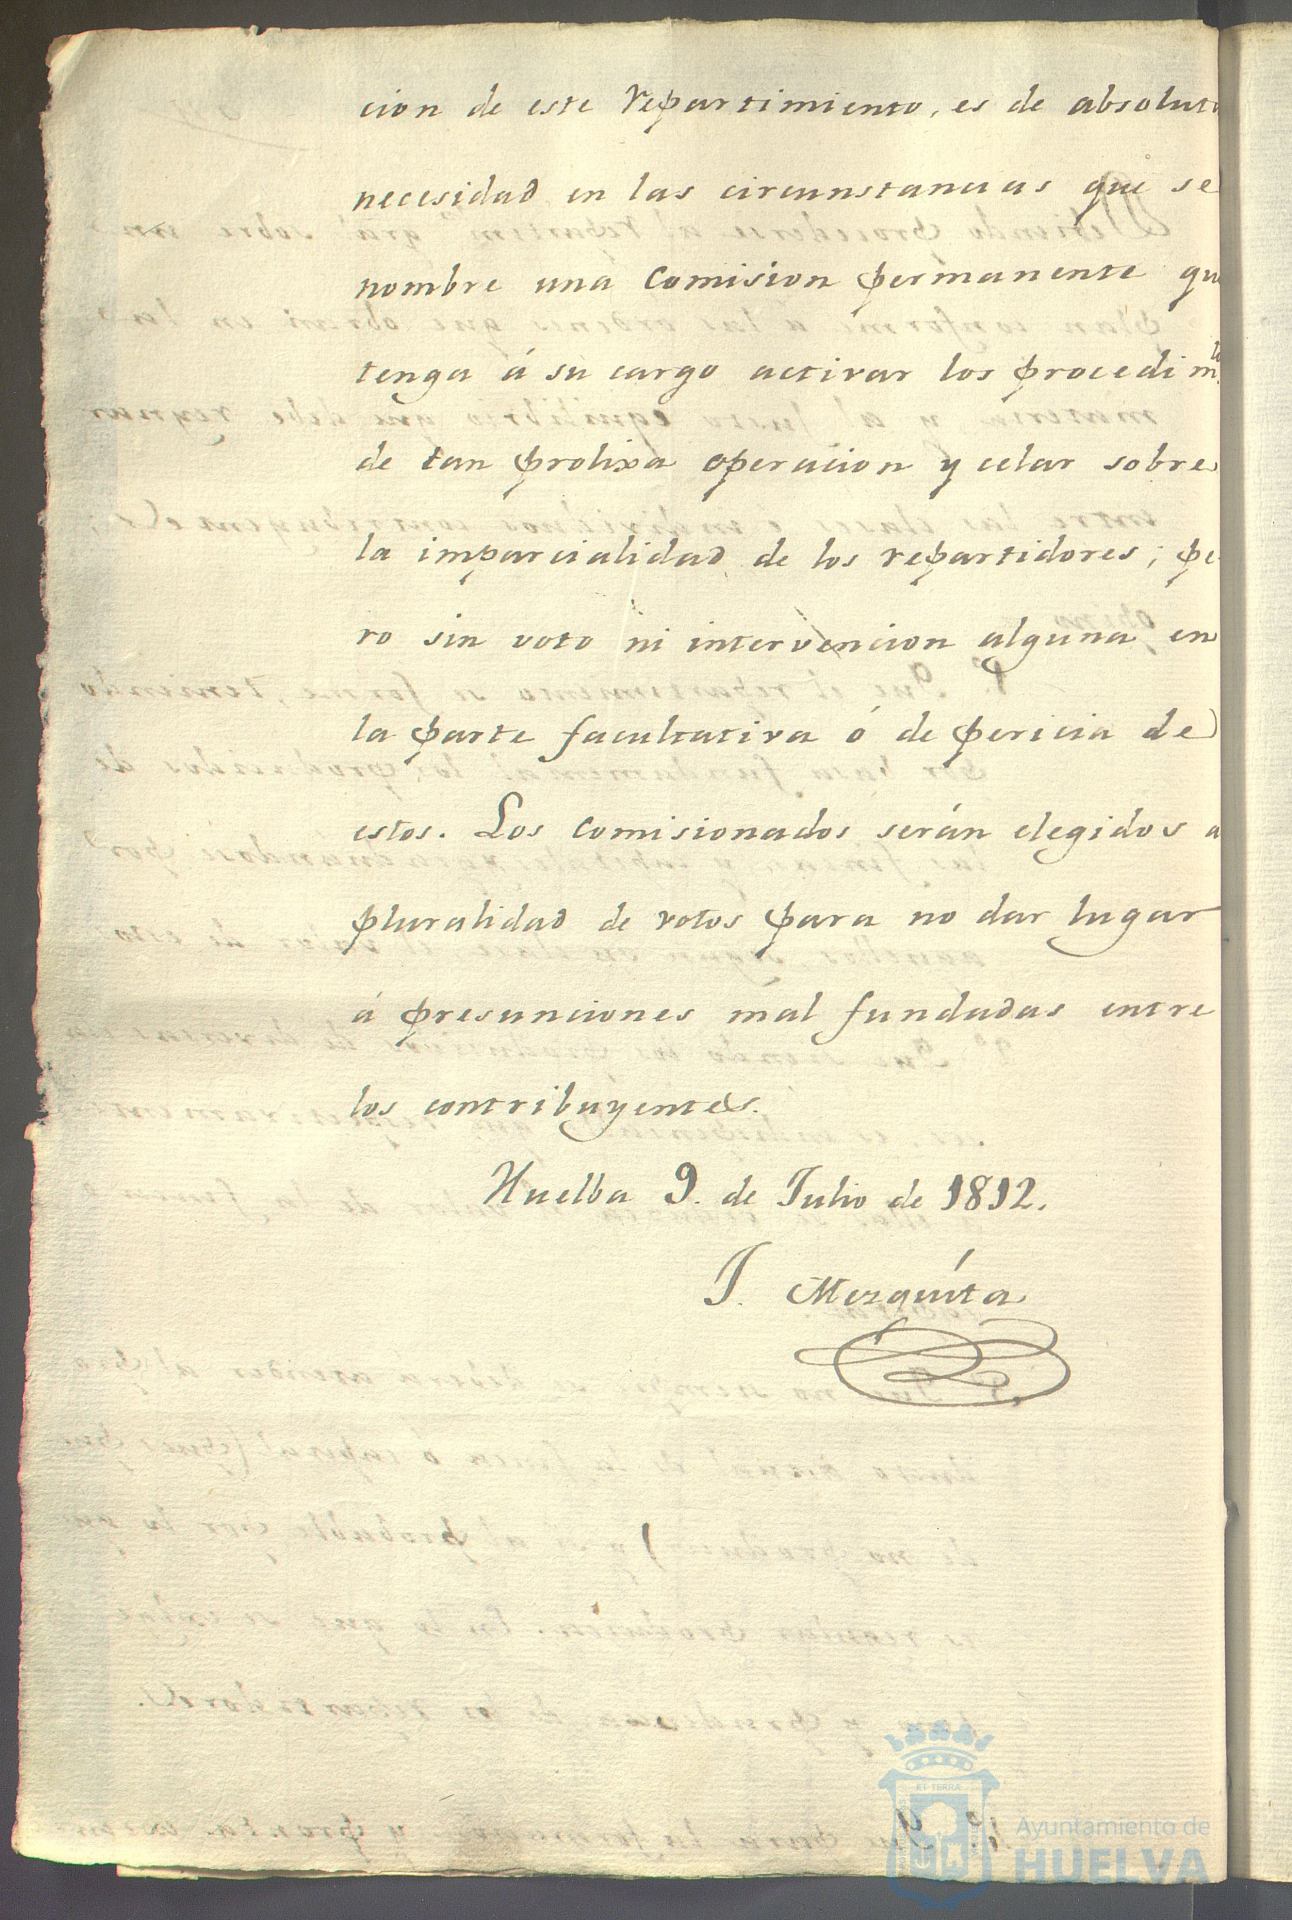 cion de este repartimiento, es de absoluta
necesidad en las circunstancias que se
nombre una comision permanente que
tenga á su cargo activar los procedim.tos
de tan prolixa operacion y celar sobre
la imparcialidad de los repartidores; pe-
ro sin voto ni intervencion alguna en
la parte facultativa ó de pericia de
estos. Los comisionados serán elegidos a
pluralidad de votos para no dar lugar
á presunciones mal fundadas entre
los contribuyentes.
Huelba 9. de Julio de 1812.
J. Mezquita
ET TERRÆ
Ayuntamiento de
HUELVA